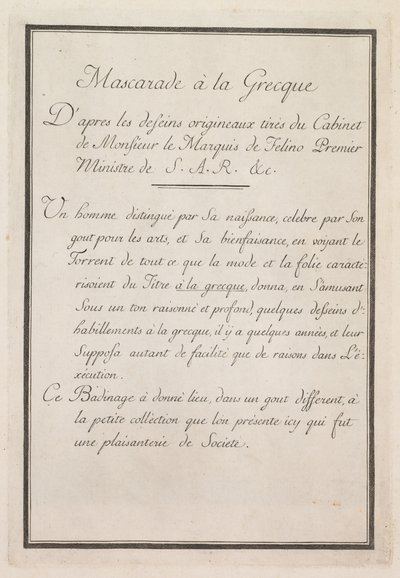 Mascarade à la Grecque
D'apres les deſeins origineaux tirés du Cabinet
de Monsieur le Marquis de Felino Premier
Ministre de S. A. R. &c.
Un homme distingué par Sa naiſsance, celebre par Son
gout pour les arts, et Sa bienfaisance, en voyant le
Torrent de tout ce que la mode et la folie caracte-
risoient du Titre à la grecque, donna, en S'amusant
Sous un ton raisonné et profond, quelques deſseins d'-
habillements à la grecque, il y a quelques années, et leur
Supposa autant de facilité que de raisons dans L'é-
xécution.
Ce Badinage à donné lieu, dans un gout different, à
la petite collection que lon présente icy qui fut
une plaisanterie de Societé.